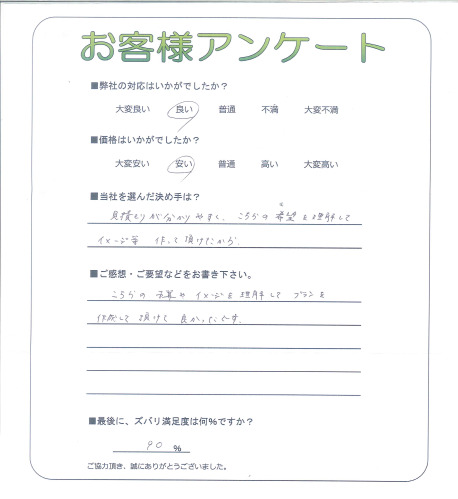 お客様アンケート
■弊社の対応はいかがでしたか？
大変良い 良い 普通 不満 大変不満
■価格はいかがでしたか？
大変安い 安い 普通 高い 大変高い
■当社を選んだ決め手は？
見積もりが分かりやすく、こちらの希望を理解して
イメージ等 作って頂けたから。
■ご感想・ご要望などをお書き下さい。
こちらの 予算や イメージを 理解して プランを
作成して 頂けて 良かったです。
■最後に、ズバリ満足度は何%ですか？
90 %
ご協力頂き、誠にありがとうございました。